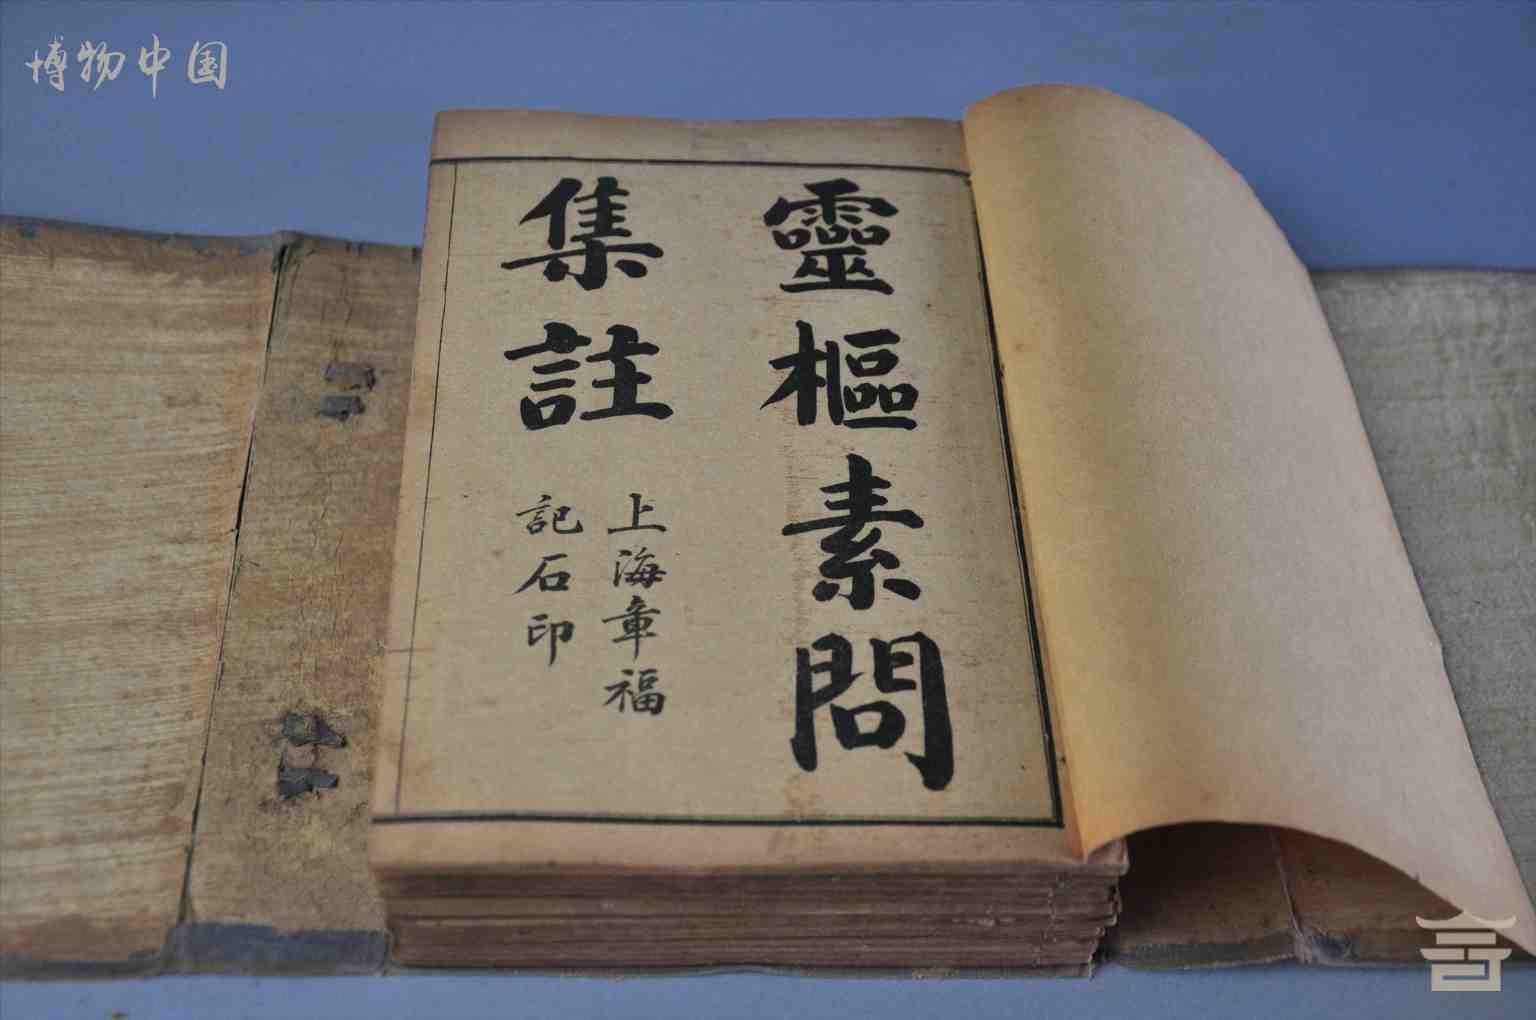 博物中国
靈樞素問
集註
上海章福
記石印